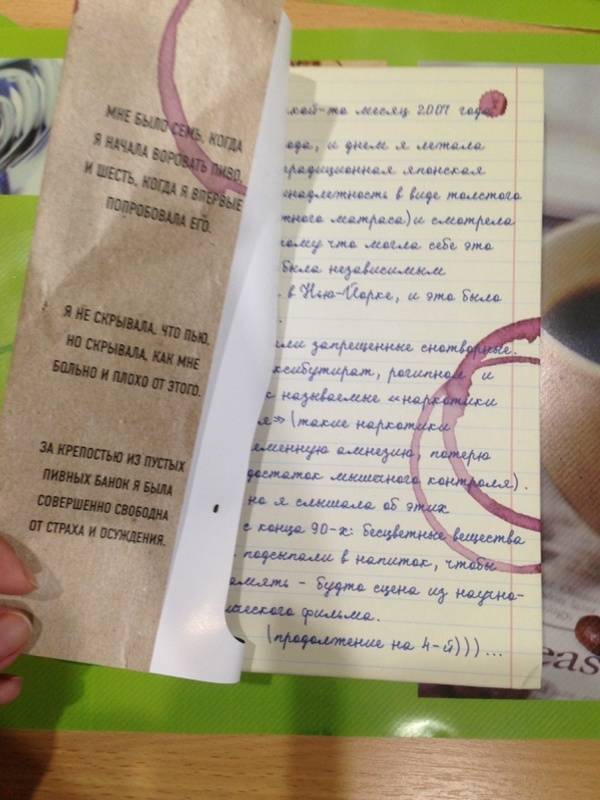 МНЕ БЫЛО СЕМЬ, КОГДА
Я НАЧАЛА ВОРОВАТЬ ПИВО,
И ШЕСТЬ, КОГДА Я ВПЕРВЫЕ
ПОПРОБОВАЛА ЕГО.
Я НЕ СКРЫВАЛА, ЧТО ПЬЮ,
НО СКРЫВАЛА, КАК МНЕ
БОЛЬНО И ПЛОХО ОТ ЭТОГО.
ЗА КРЕПОСТЬЮ ИЗ ПУСТЫХ
ПИВНЫХ БАНОК Я БЫЛА
СОВЕРШЕННО СВОБОДНА
ОТ СТРАХА И ОСУЖДЕНИЯ.
акой-то месяц 2007 года
ода, и днем я летала
традиционная японская
инадлежность в виде толстого
тного матраса) и смотрела
тому что могла себе это
была независимым
в Нью-Йорке, и это было
или запрещенные снотворные.
ксибутират, рогипнол и
к называемые «наркотики
я» (такие наркотики
еменную амнезию, потерю
достаток мышечного контроля).
но я слышала об этих
с конца 90-х: бесцветные вещества
подсыпали в напиток, чтобы
амять - будто сцена из научно-
ического фильма.
(продолжение на 4-й))) ...
eas